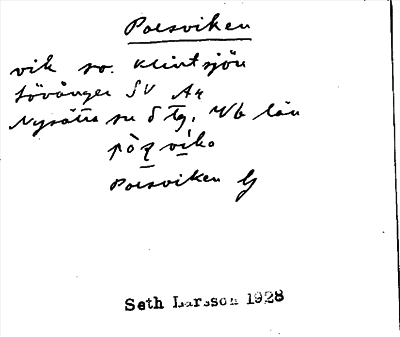 Porsviken
vik so. Klintsjön
Lövånger SV Ar
Nysätra sn
Vb län
Porsviken G
Seth Larsson 1928